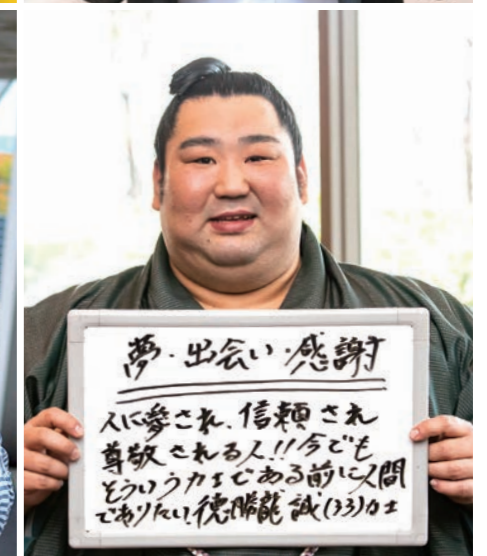 夢・出会い・感謝
人に愛され、信頼され
尊敬される人!!今でも
そういう力士である前に人間
でありたい!徳勝龍 誠(33)力士